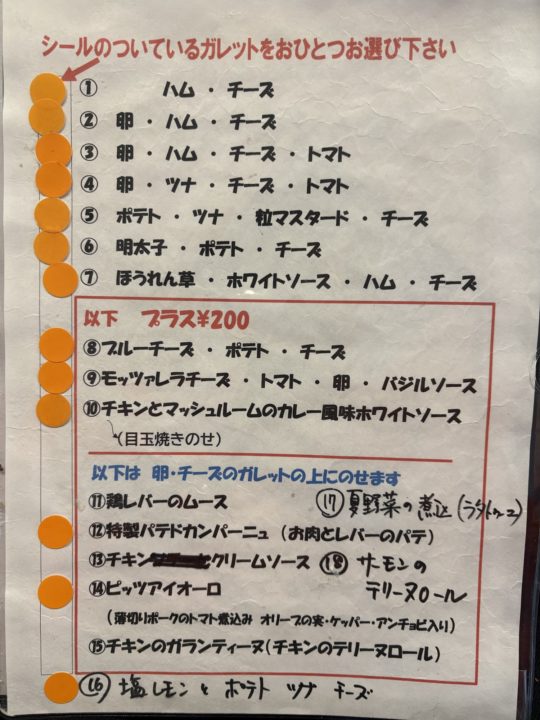 シールのついているガレットをおひとつお選び下さい
① ハム ・ チーズ
② 卵 ・ ハム ・ チーズ
③ 卵 ・ ハム ・ チーズ ・ トマト
④ 卵 ・ ツナ ・ チーズ ・ トマト
⑤ ポテト ・ ツナ ・ 粒マスタード ・ チーズ
⑥ 明太子 ・ ポテト ・ チーズ
⑦ ほうれん草 ・ ホワイトソース ・ ハム ・ チーズ
以下 プラス¥200
⑧ブルーチーズ ・ ポテト ・ チーズ
⑨モッツァレラチーズ ・ トマト ・ 卵 ・ バジルソース
⑩チキンとマッシュルームのカレー風味ホワイトソース
(目玉焼きのせ)
以下は 卵・チーズのガレットの上にのせます
⑪鶏レバーのムース
⑰夏野菜の煮込(ラタトゥーユ)
⑫特製パテドカンパーニュ (お肉とレバーのパテ)
⑬チキンクリームソース
⑱ サーモンの
テリーヌロール
⑭ピッツアイオーロ
(薄切りポークのトマト煮込み オリーブの実・ケッパー・アンチョビ入り)
⑮チキンのガランティーヌ(チキンのテリーヌロール)
⑯ 塩レモンと ポテト ツナ チーズ